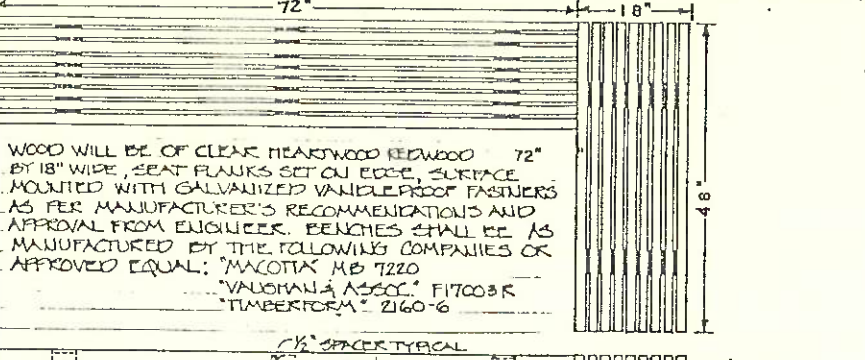 72"
18"
WOOD WILL BE OF CLEAR HEARTWOOD REDWOOD 72"
BY 18" WIDE, SEAT PLANKS SET ON EDGE, SURFACE
MOUNTED WITH GALVANIZED VANDLEPROOF FASTNERS
AS PER MANUFACTURER'S RECOMMENDATIONS AND
APPROVAL FROM ENGINEER. BENCHES SHALL BE AS
MANUFACTURED BY THE FOLLOWING COMPANIES OR
APPROVED EQUAL: "MACOTTA" MB 7220
"VAUGHAN & ASSOC." F17003R
"TIMBERFORM" 2160-6
48"
1/2" SPACER TYPICAL